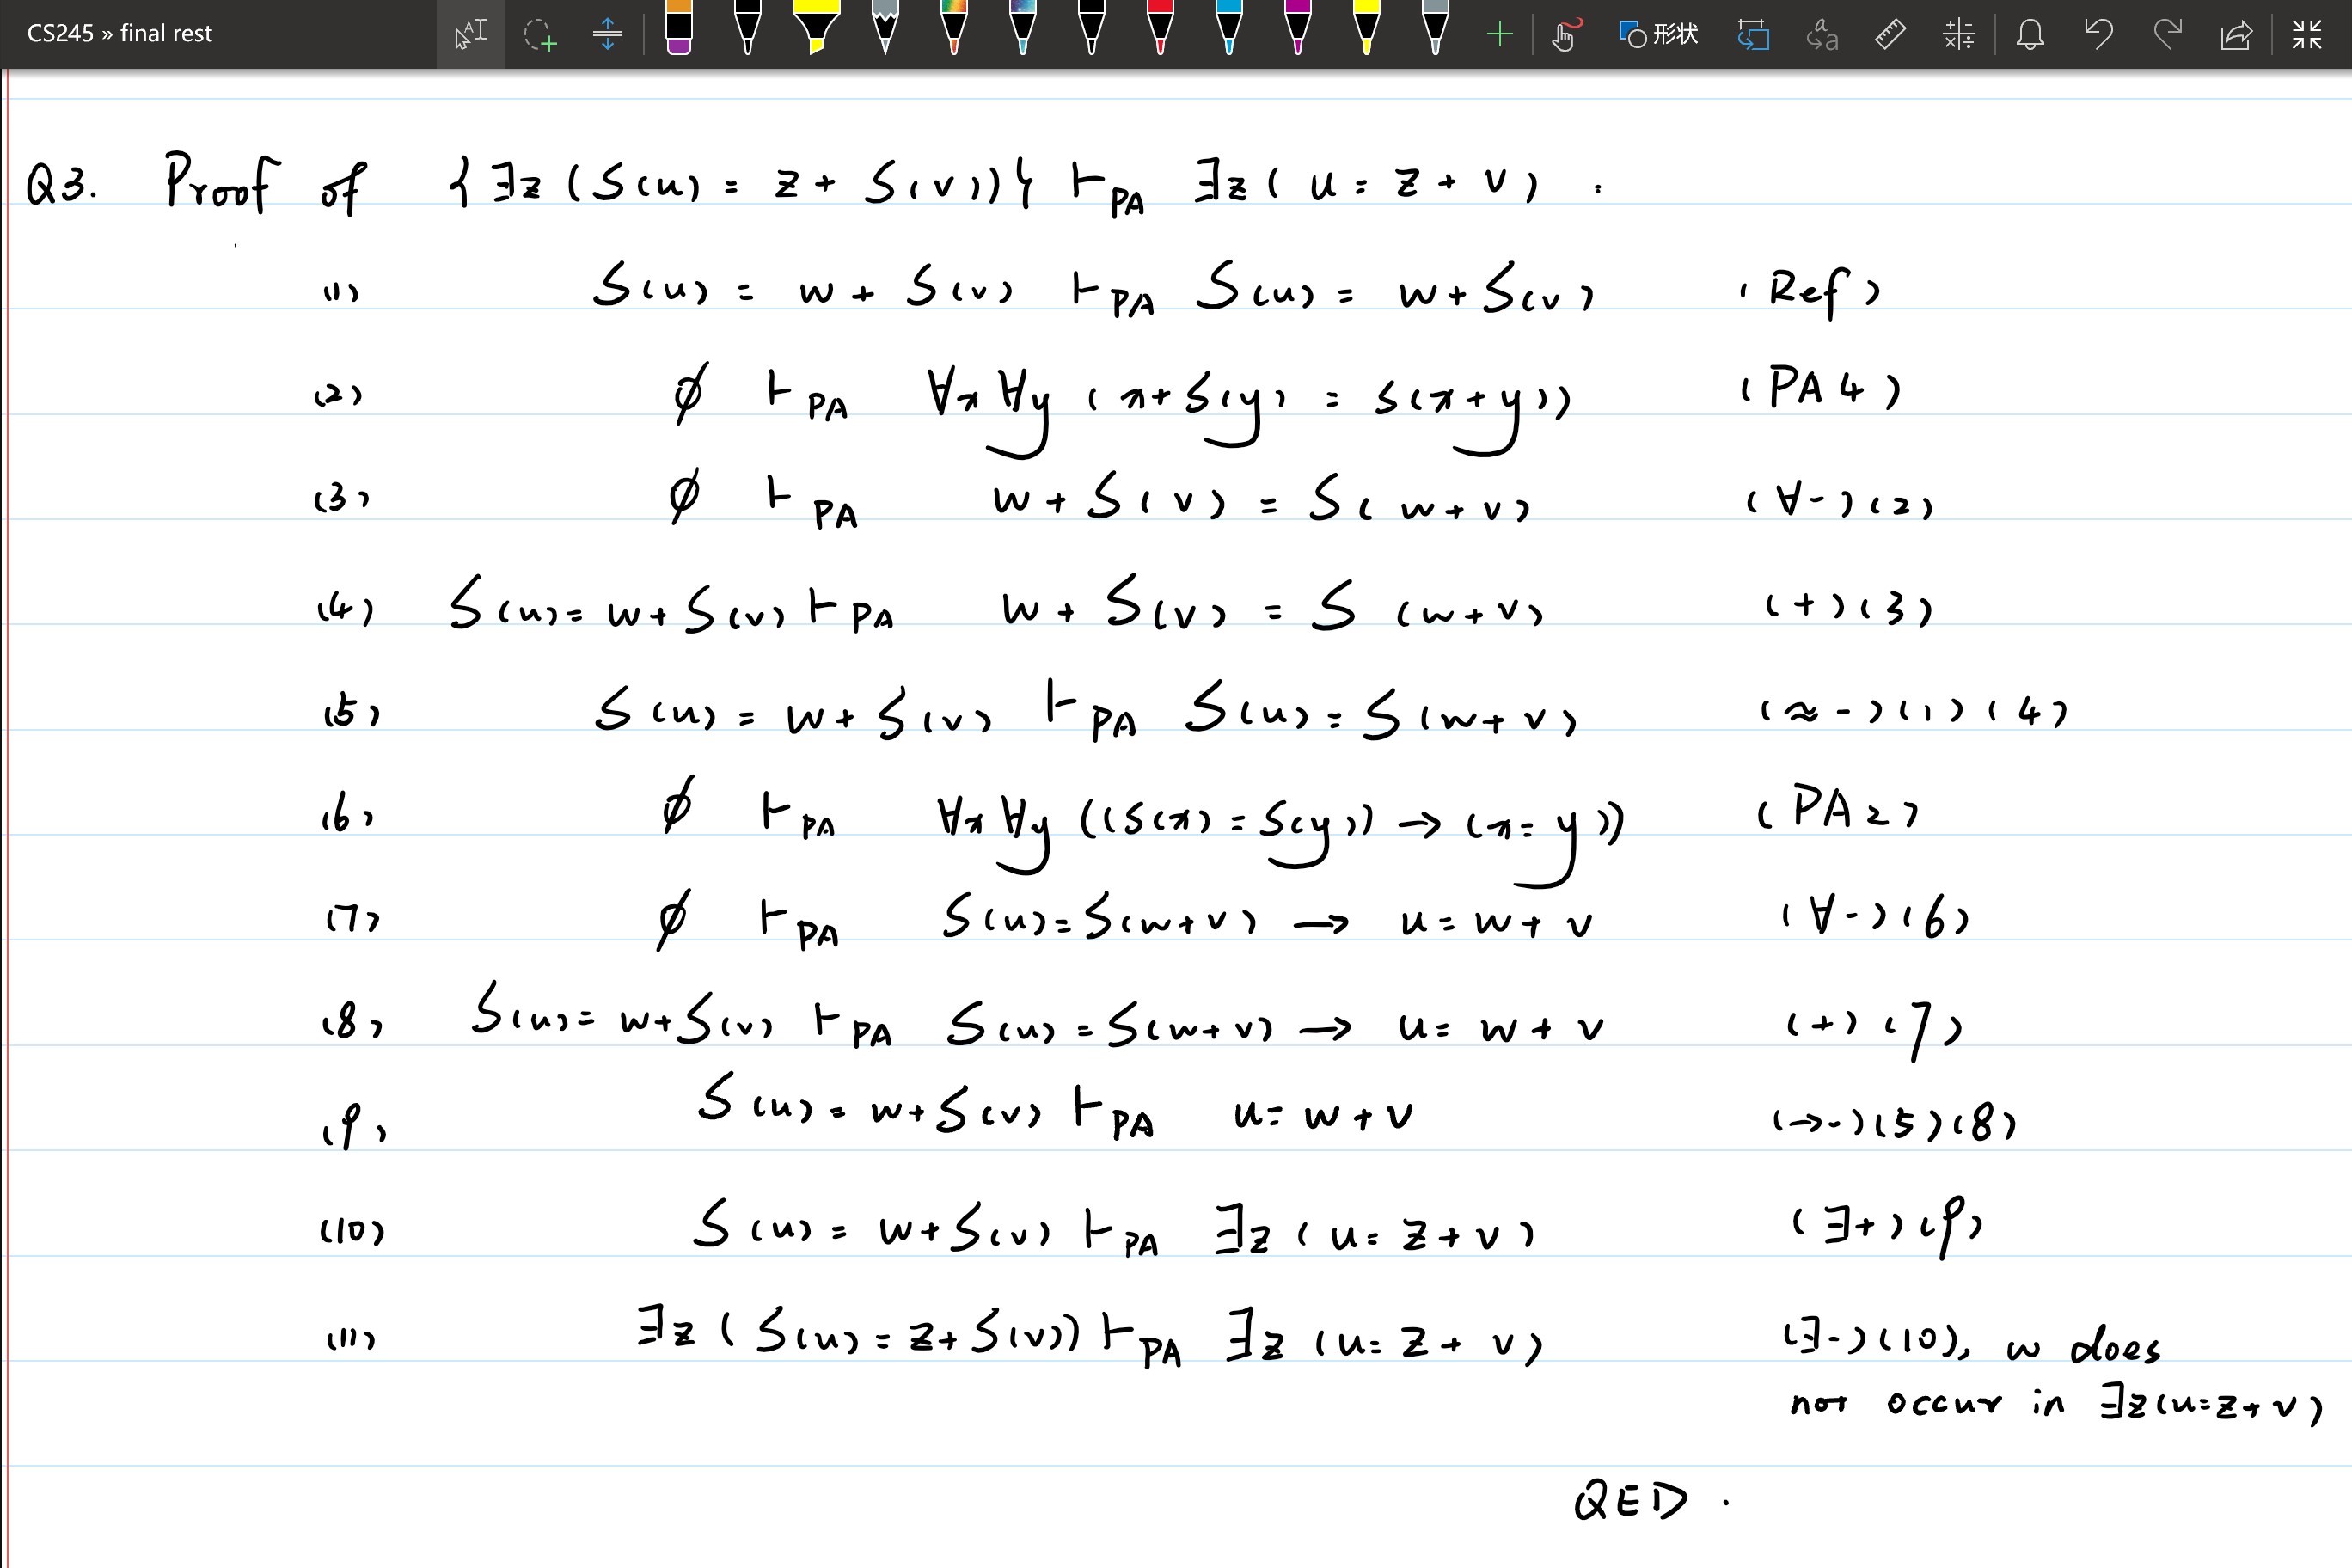 CS245 » final rest
形状
Q3. Proof of {∃z (S(u) = z + S(v))} ⊢PA ∃z ( u = z + v ) .
(1) S(u) = w + S(v) ⊢PA S(u) = w + S(v) (Ref)
(2) ∅ ⊢PA ∀x ∀y (x + S(y) = S(x+y)) (PA4)
(3) ∅ ⊢PA w + S(v) = S( w+v) (∀-)(2)
(4) S(u) = w + S(v) ⊢PA w + S(v) = S (w+v) (+)(3)
(5) S(u) = w + S(v) ⊢PA S(u) = S(w+v) (≈-)(1)(4)
(6) ∅ ⊢PA ∀x ∀y ((S(x) = S(y)) → (x = y)) (PA2)
(7) ∅ ⊢PA S(u) = S(w+v) → u = w + v (∀-)(6)
(8) S(u) = w+S(v) ⊢PA S(u) = S(w+v) → u = w + v (+)(7)
(9) S(u) = w+S(v) ⊢PA u = w+v (→-)(5)(8)
(10) S(u) = w+S(v) ⊢PA ∃z ( u = z+v) (∃+)(9)
(11) ∃z (S(u) = z+S(v)) ⊢PA ∃z (u = z + v) (∃-)(10), w does
not occur in ∃z(u=z+v)
QED .